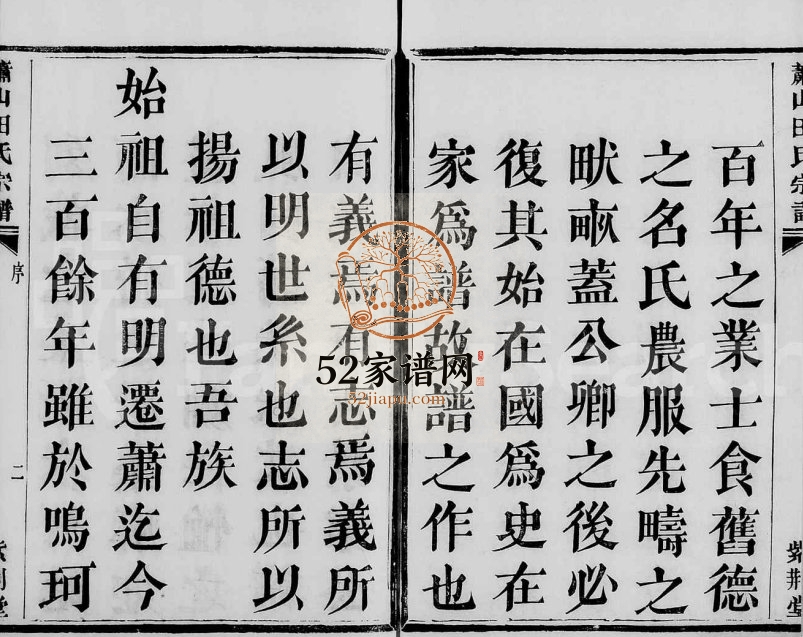 蕭山田氏宗譜
紫荆堂
百年之業士食舊德
之名氏農服先疇之
畎畝蓋公卿之後必
復其始在國爲史在
家爲譜故譜之作也
有義焉有志焉義所
以明世系也志所以
揚祖德也吾族
始祖自有明遷蕭迄今
三百餘年雖於鳴珂
蕭山田氏宗譜
序
二
紫荆堂
52家谱网
52jiapu.com